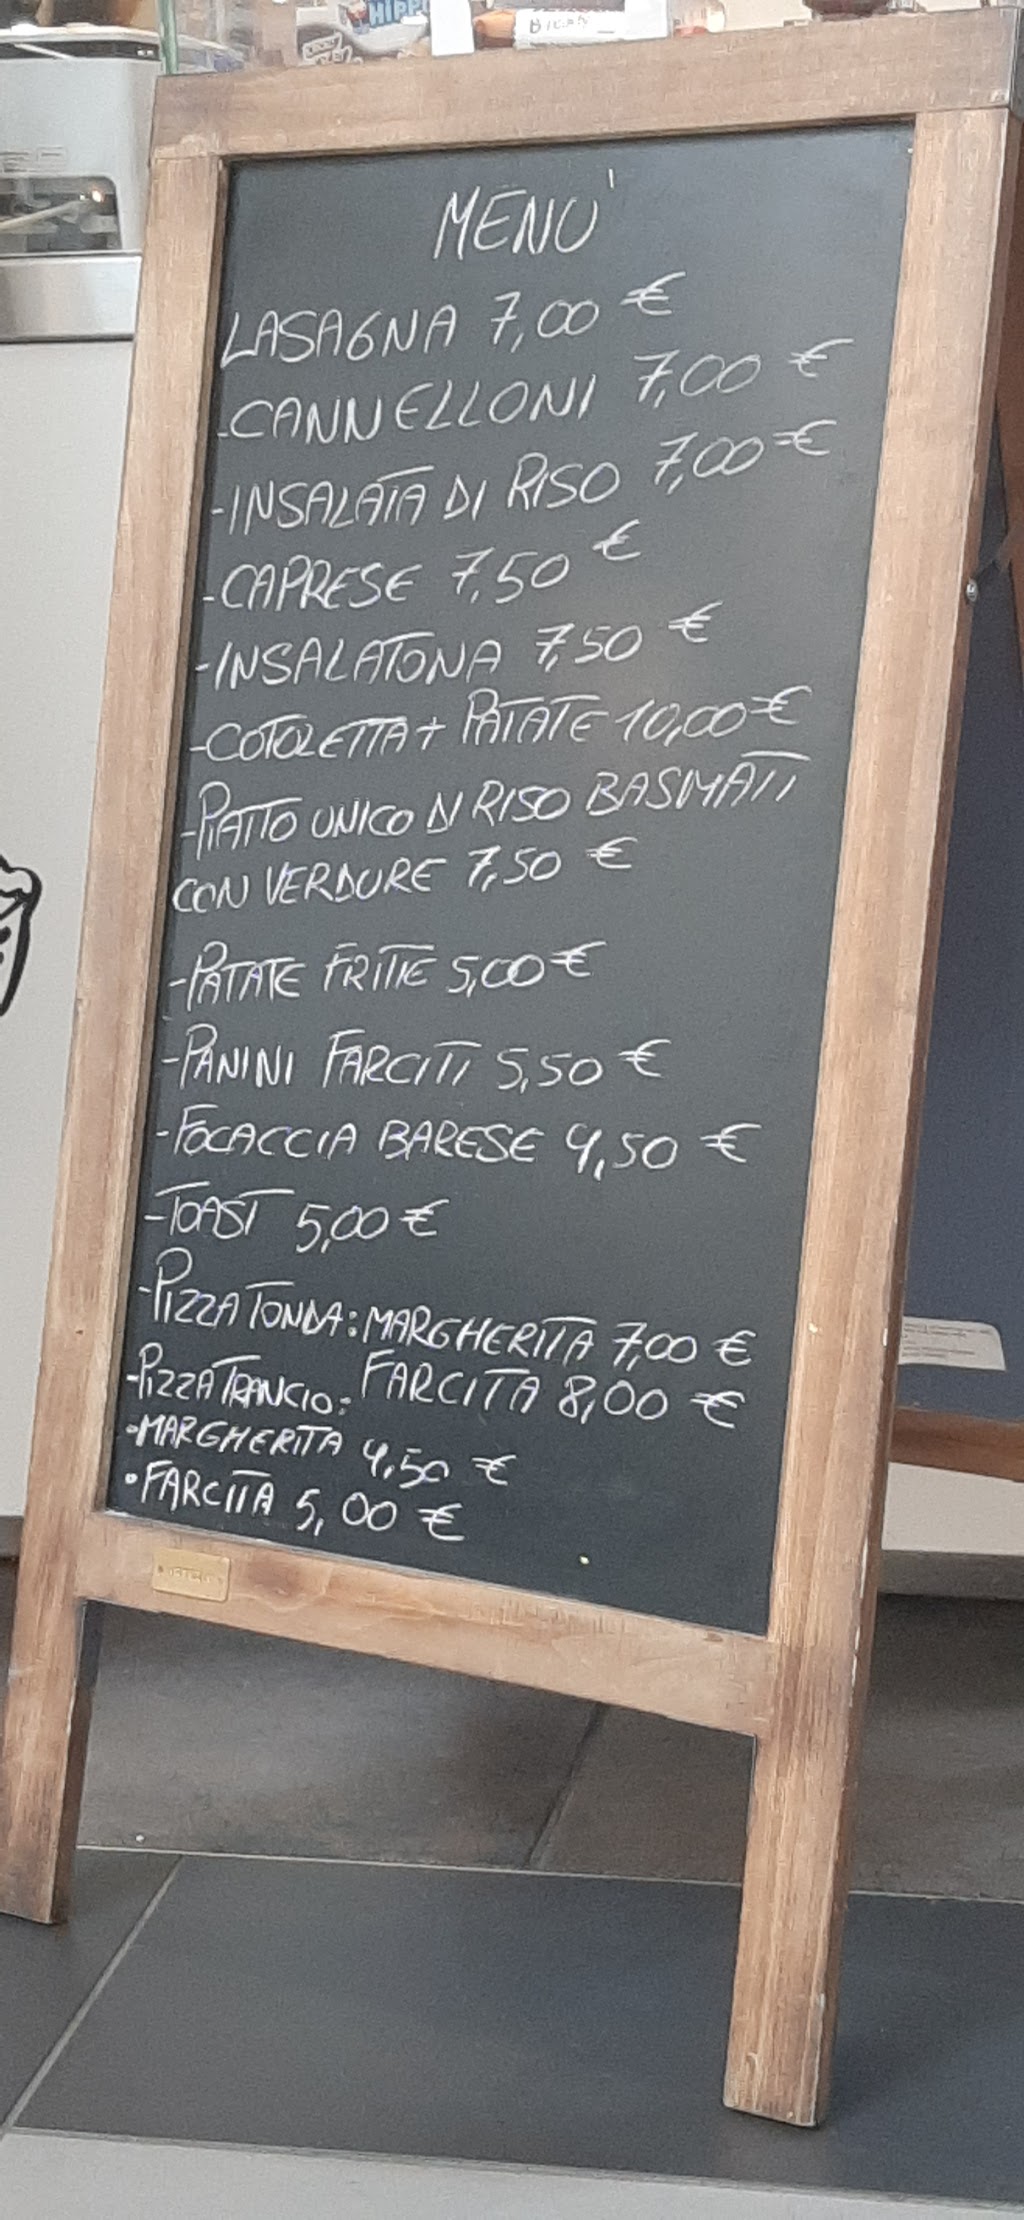 HIPP
MENU'
LASAGNA 7,00 €
-CANNELLONI 7,00 €
-INSALATA DI RISO 7,00 €
-CAPRESE 7,50 €
-INSALATONA 7,50 €
-COTOLETTA + PATATE 10,00 €
-PIATTO UNICO DI RISO BASMATI
CON VERDURE 7,50 €
-PATATE FRITTE 5,00 €
-PANINI FARCITI 5,50 €
-FOCACCIA BARESE 4,50 €
-TOAST 5,00 €
-PIZZA TONDA: MARGHERITA 7,00 €
FARCITA 8,00 €
-PIZZA TRANCIO:
•MARGHERITA 4,50 €
•FARCITA 5,00 €